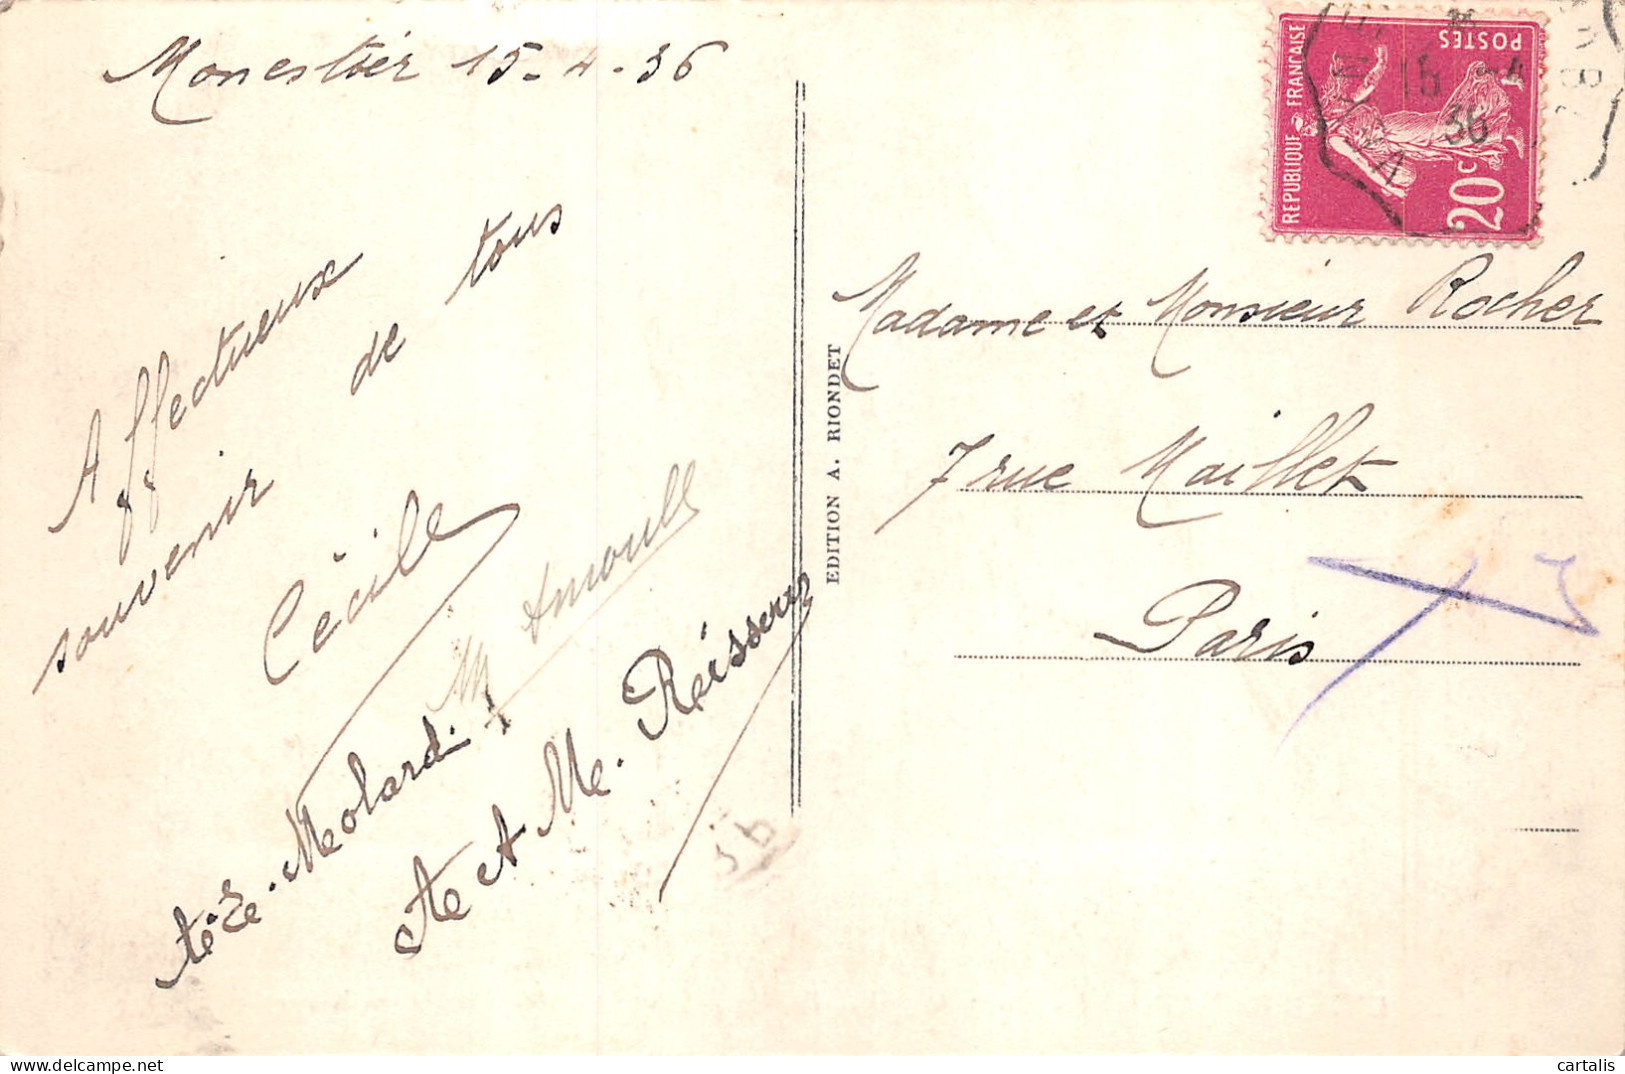 Monestier 15-4-36
Affectueux
souvenir de tous
Cécile
M Arnoull
et E. Molard.
A et M. Reisser
EDITION A. RIONDET
REPUBLIQUE FRANCAISE
POSTES
20c
15 -4
36
Madame et Monsieur Rocher
7 rue Maillet
Paris
cartalis